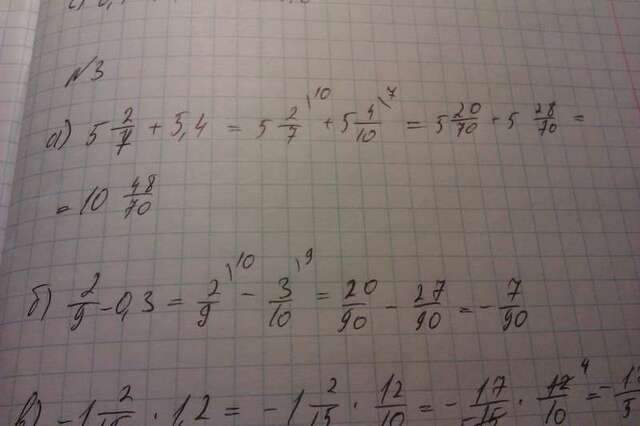 №3
а) 5 2/7 + 5,4 = 5 2/7 \10 + 5 4/10 \7 = 5 20/70 + 5 28/70 =
= 10 48/70
б) 2/9 - 0,3 = 2/9 \10 - 3/10 \9 = 20/90 - 27/90 = - 7/90
в) -1 2/15 · 1,2 = -1 2/15 · 12/10 = - 17/15 · 12/10 4 = -